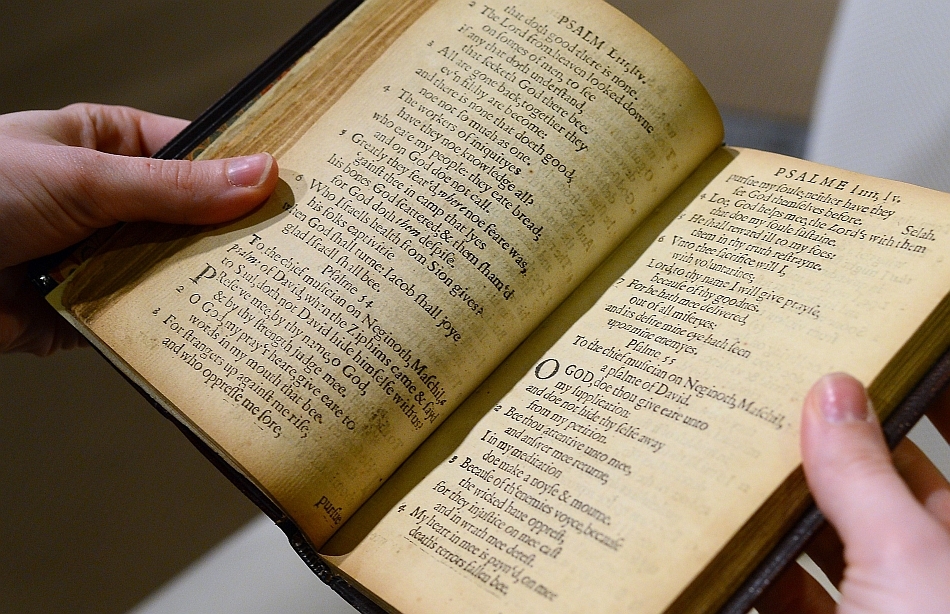 PSALM liii, liv.
that doth good there is none.
2 The Lord from heaven looked downe
on sonnes of men, to see
if any that doth understand,
that seeketh God there bee.
3 All are gone back, together they
ev'n filthy are become:
and there is none that doth good,
noe not so much as one.
4 The workers of iniquityes
have they not knowledge all?
who eate my people: they eate bread,
and on God doe not call.
5 Greatly they fear'd, where noe feare was,
gainst thee in camp that lyes
his bones God scattered; & them sham'd
for God doth them despise.
6 Who Israells health from Sion gives?
his folks captivitie
when God shall turne: Iacob shall joye
glad Israell shall bee.
Psalme 54.
To the chief musician on Neginoth, Maschil, a
psalm of David, when the Ziphims came & sayd
to Saul, doth not David hide himselfe with us?
PReserve me, by thy name, o God,
& by thy strength judge mee.
2 O God, my pray'r heare, give eare to
words in my mouth that bee.
3 For strangers up against me rise,
and who oppresse me sore,
pursue
PSALME liiii, lv.
pursue my soule; neither have they
set God themselves before. Selah.
4 Loe, God helps mee, the Lord's with them
that doe my soule sustaine.
5 Hee shall reward ill to my foes:
them in thy truth restrayne.
6 Vnto thee sacrifice will I,
with voluntarines;
Lord, to thy name I will give prayse,
because of thy goodnes.
7 For he hath mee delivered,
out of all miseryes:
and its desire mine eye hath seen
upon mine enemyes.
Psalme 55
To the chief musician on Neginoth, Maschil,
a psalme of David.
O GOD, doe thou give eare unto
my supplication:
and doe not hide thy selfe away
from my petition.
2 Bee thou attentive unto mee,
and answer mee returne,
I in my meditation
doe make a noyse & mourne.
3 Because of th'enemies voyce, because
the wicked have opprest,
for they injustice on mee cast
and in wrath mee detest.
4 My heart in mee is payn'd, on mee
deaths terrors fallen bee.